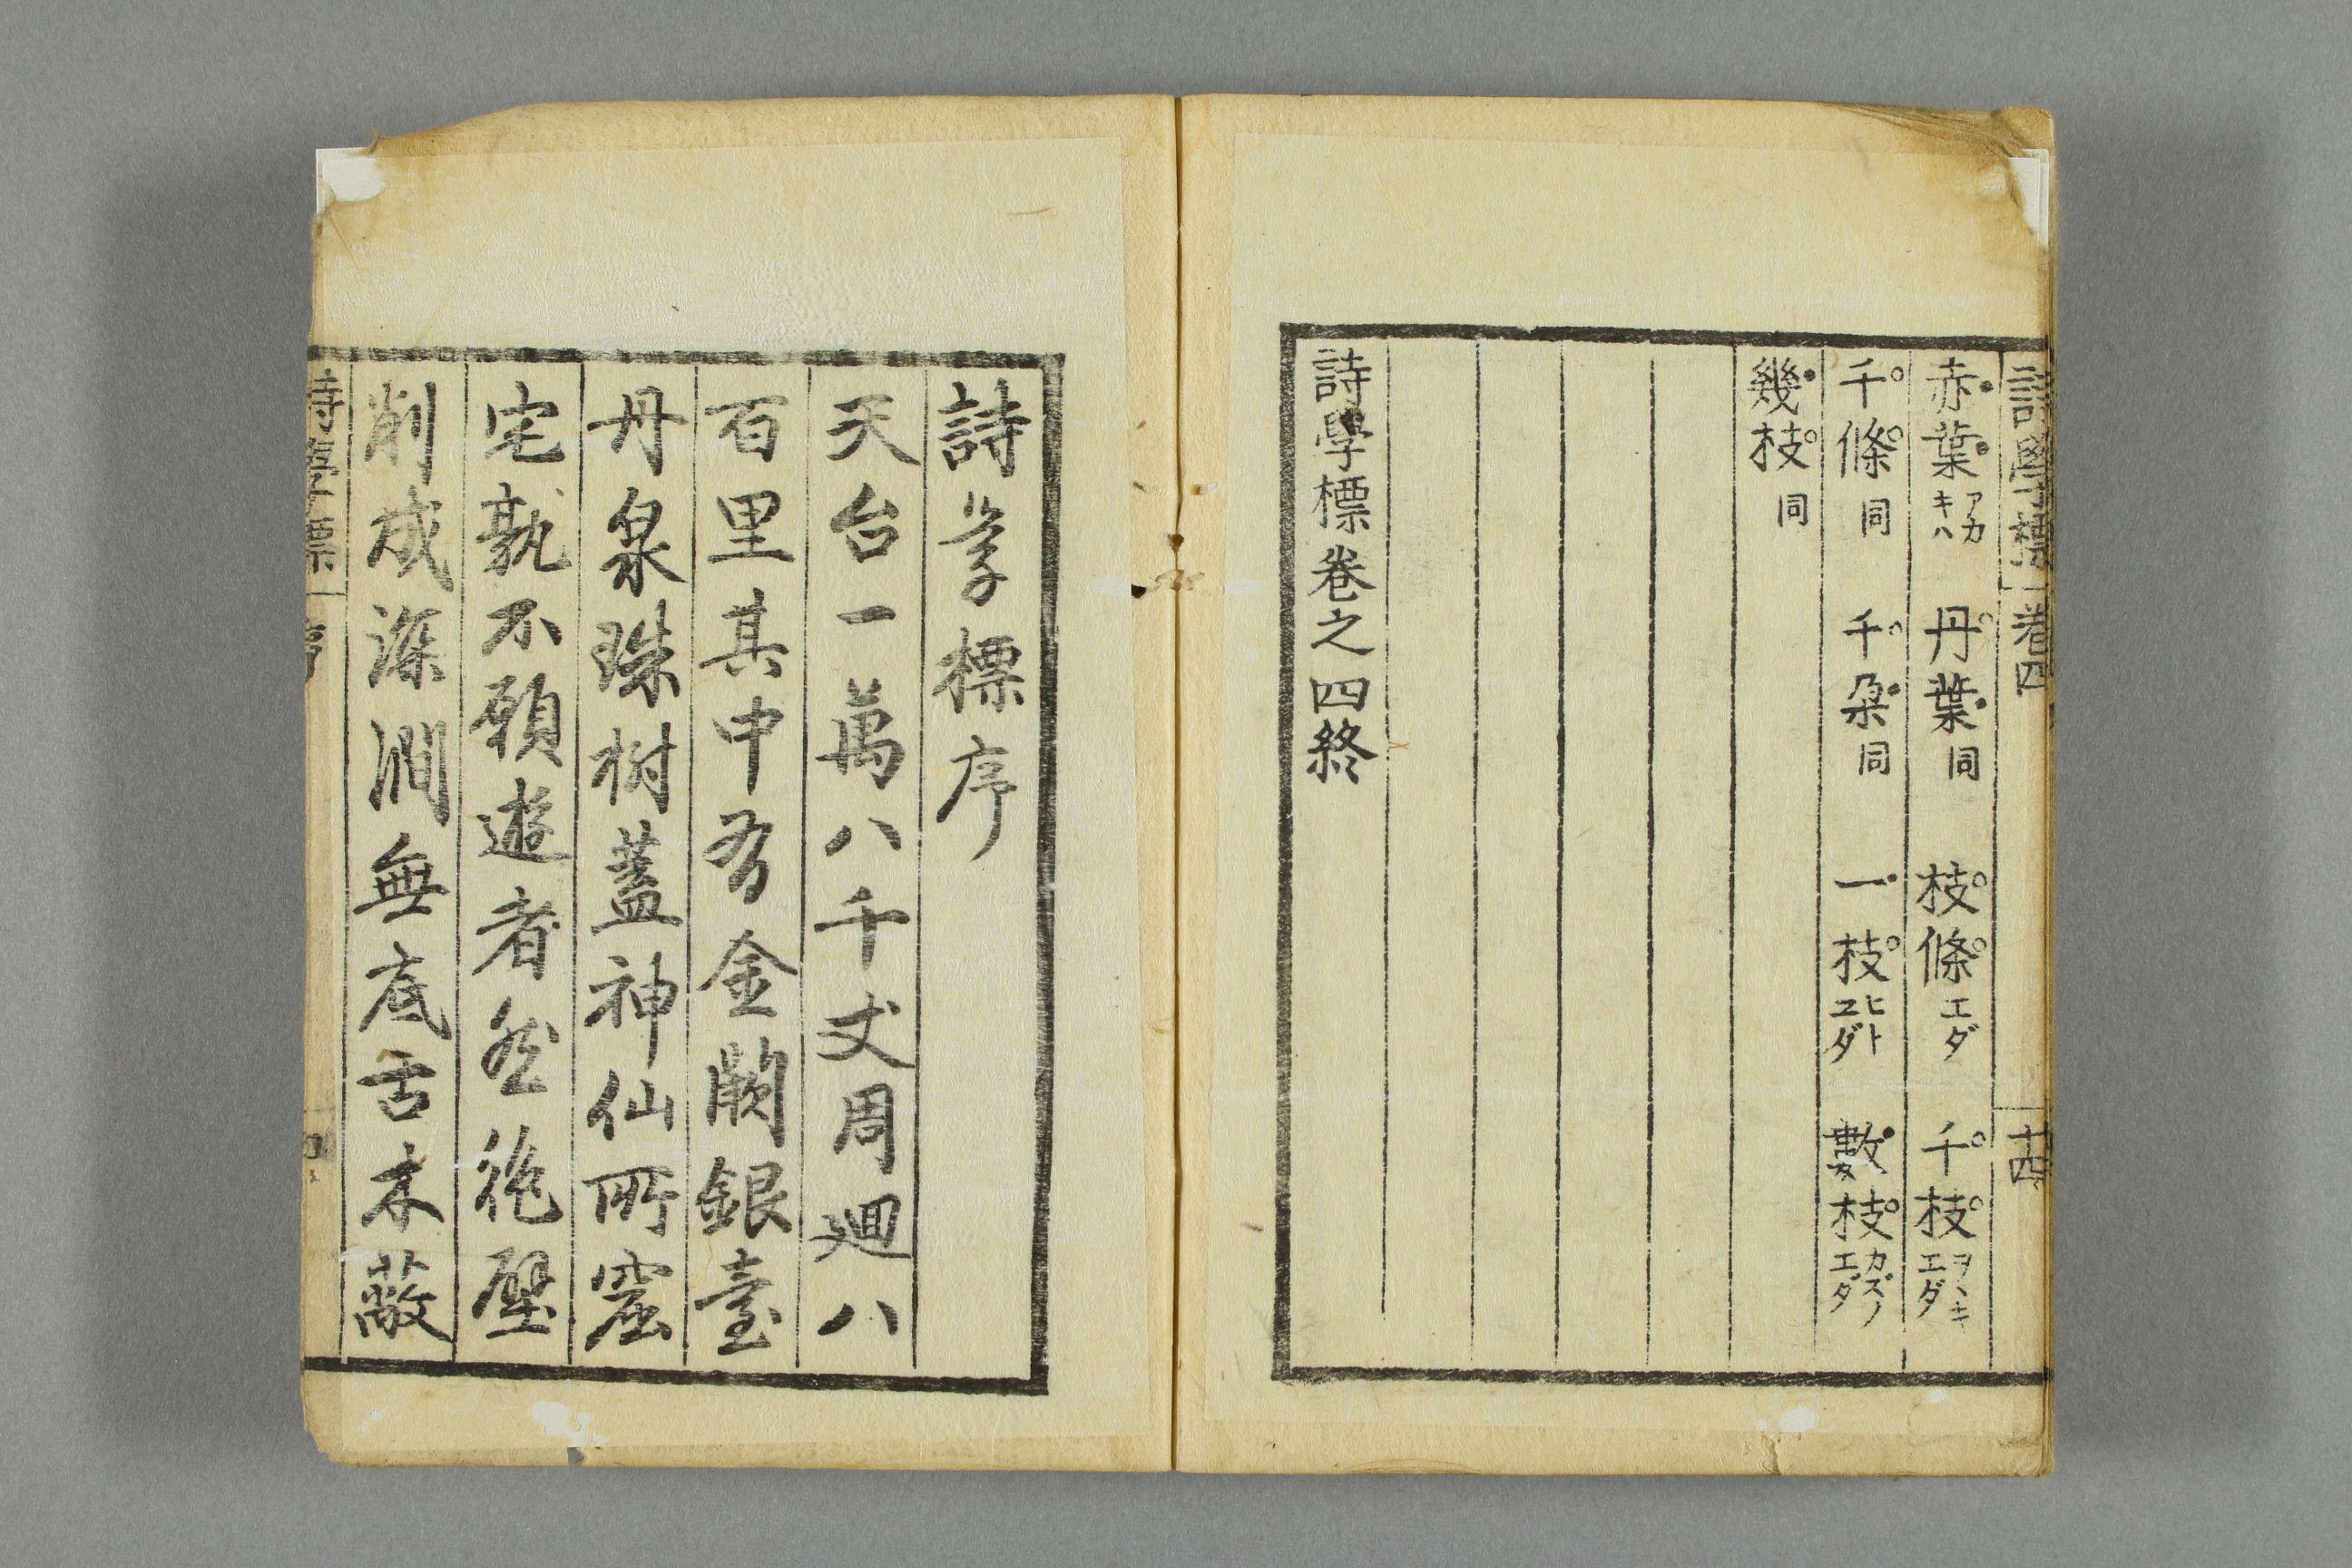 詩學標 卷四 十四
赤葉アカキハ 丹葉同 枝條エダ 千枝ヲヽキエダ
千條同 千朶同 一枝ヒトエダ 數枝カズノエダ
幾枝同
詩學標卷之四終
詩学標序
天台一萬八千丈周廻八
百里其中有金闕銀臺
丹泉珠樹蓋神仙所窟
宅孰不願遊者然絶壁
削成深澗無底舌木蔽
詩學標 序